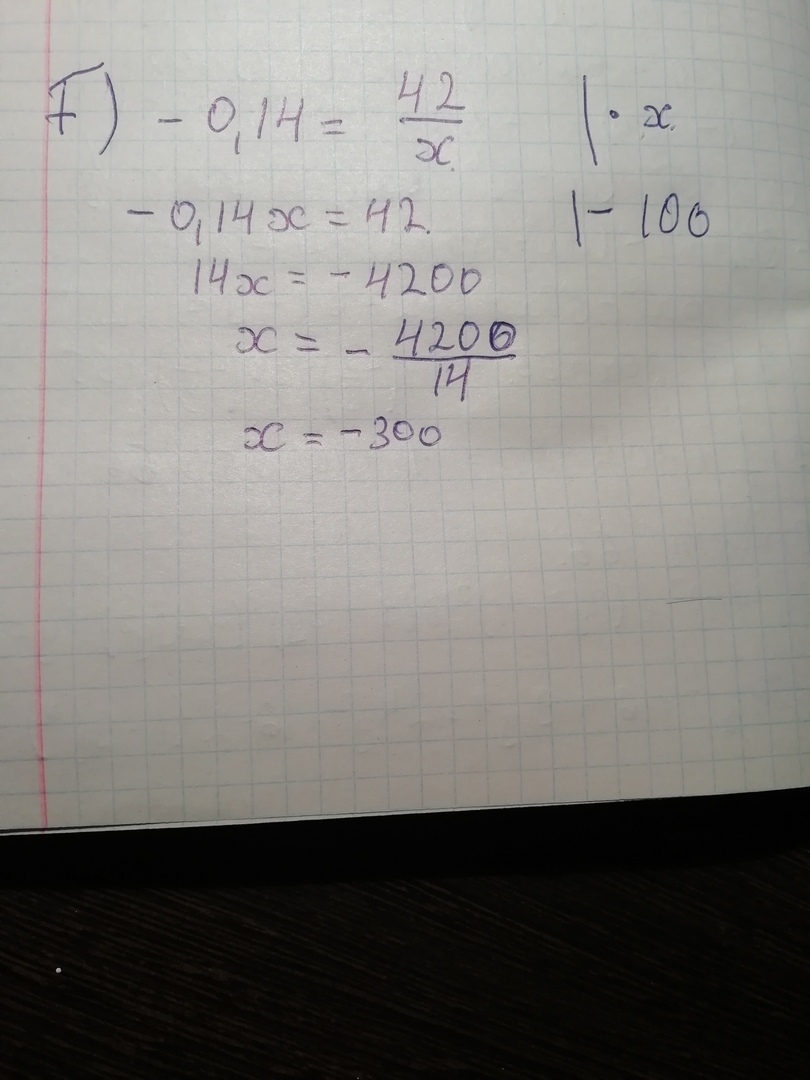 F) - 0,14 = 42/x | · x
- 0,14x = 42. | - 100
14x = - 4200
x = - 4200/14
x = - 300